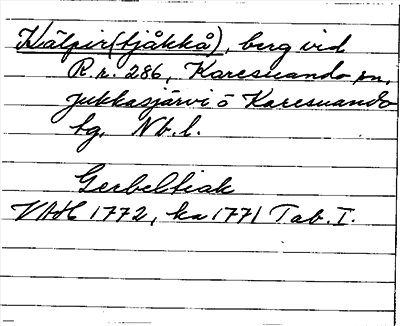 Kälpir(tjåkkå), berg vid
R.r. 286, Karesuando sn,
Jukkasjärvi o Karesuando
tg, Nb.l.
Gerbeltiak
VAH 1772, ka 1771 Tab. I.